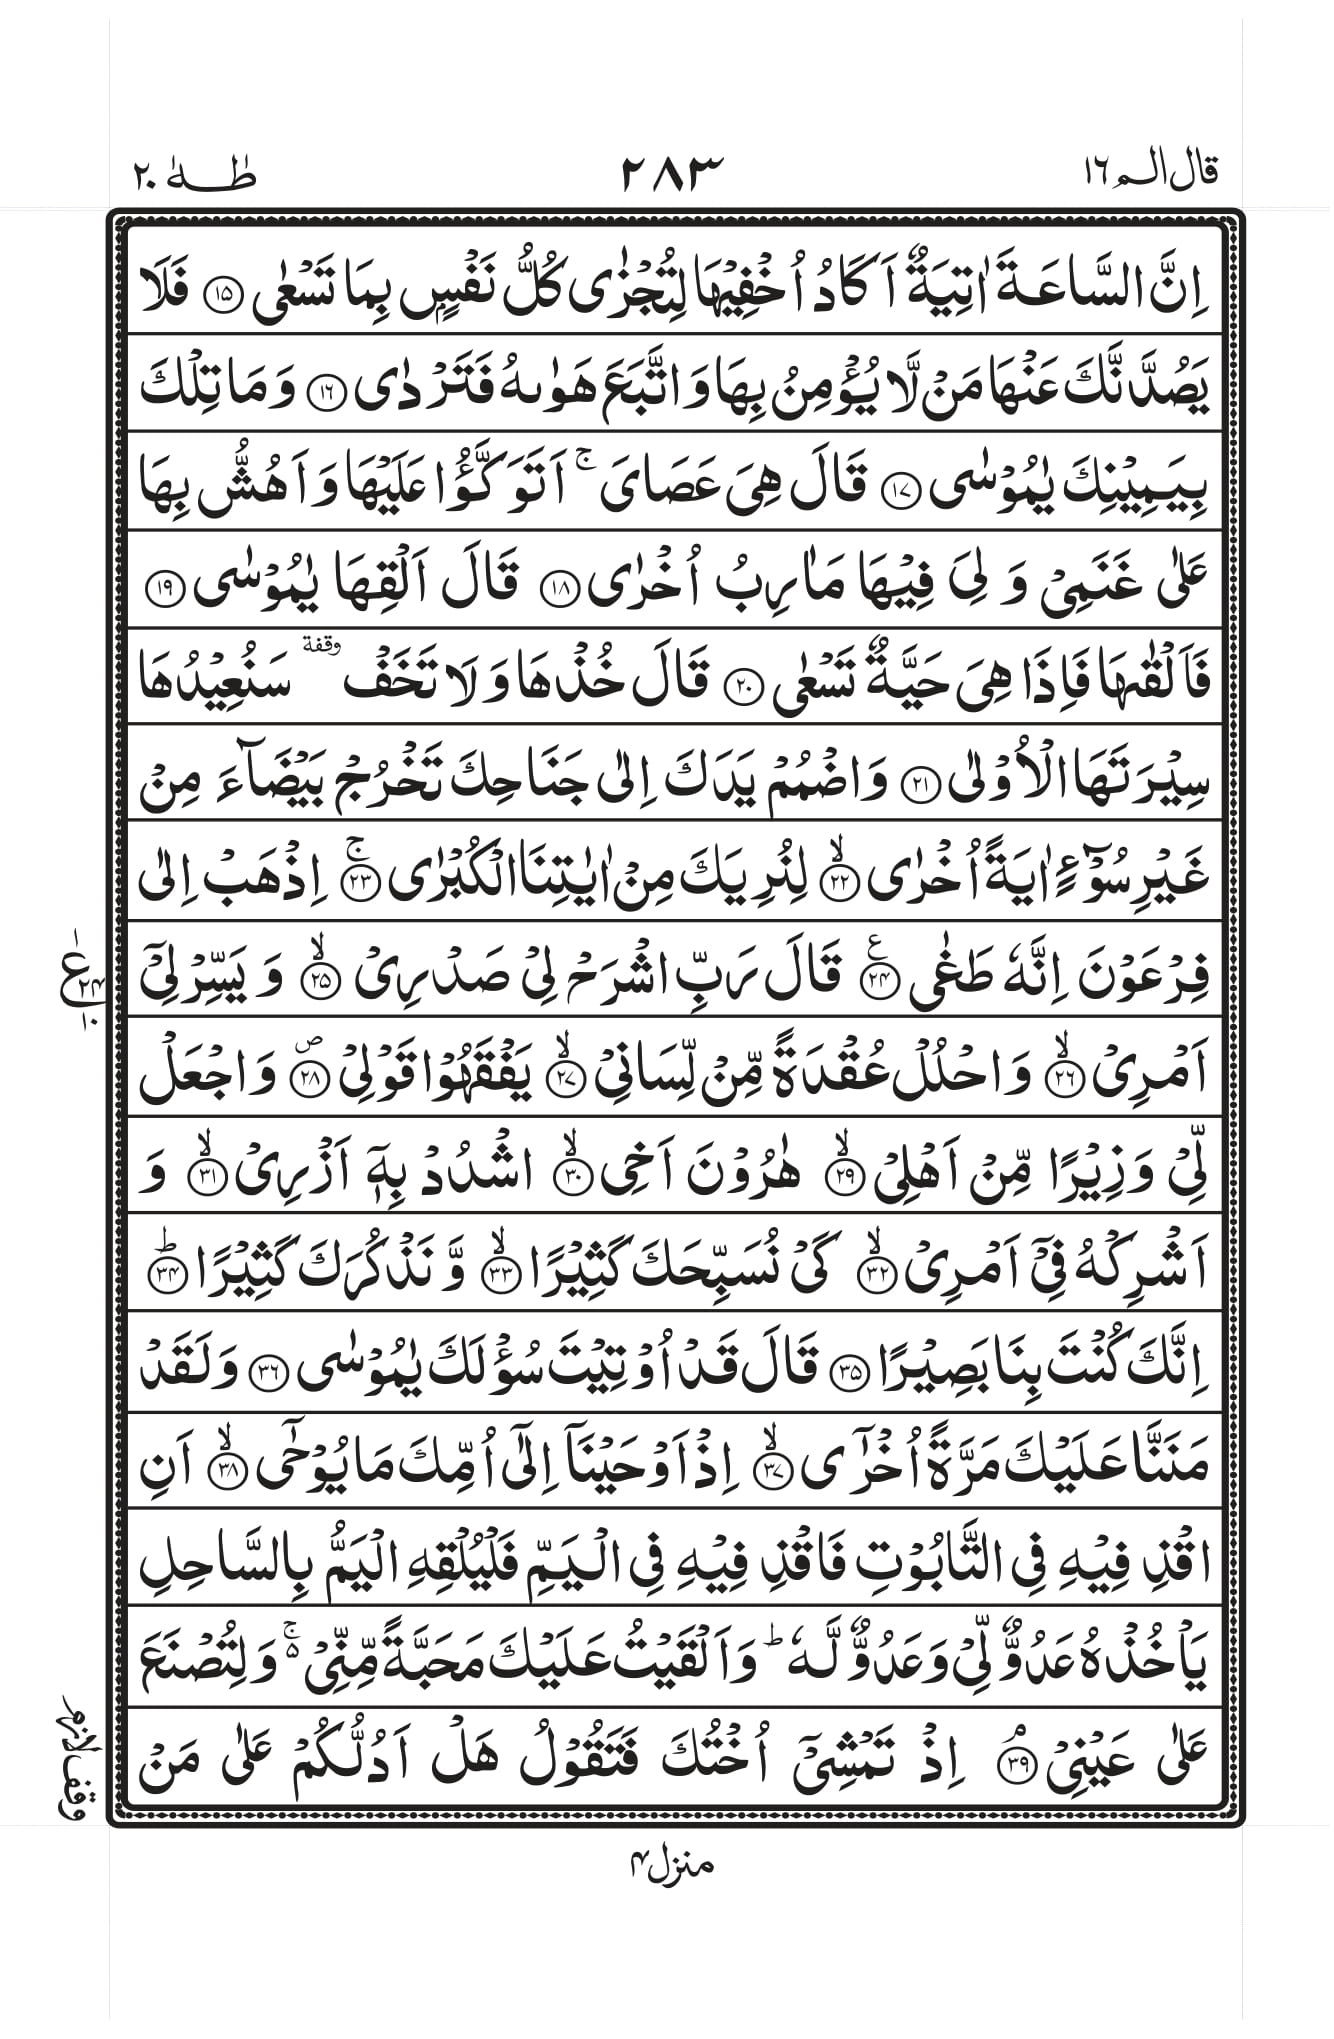 قال الم ١٦
٢٨٣
طٰهٰ ٢٠
اِنَّ السَّاعَةَ اٰتِيَةٌ اَكَادُ اُخْفِيْهَا لِتُجْزٰى كُلُّ نَفْسٍۭ بِمَا تَسْعٰى ﴿۱۵﴾ فَلَا
يَصُدَّنَّكَ عَنْهَا مَنْ لَّا يُؤْمِنُ بِهَا وَاتَّبَعَ هَوٰىهُ فَتَرْدٰى ﴿۱۶﴾ وَمَا تِلْكَ
بِيَمِيْنِكَ يٰمُوْسٰى ﴿۱۷﴾ قَالَ هِىَ عَصَاىَ ۚ اَتَوَكَّؤُا عَلَيْهَا وَاَهُشُّ بِهَا
عَلٰى غَنَمِىْ وَ لِىَ فِيْهَا مَاٰرِبُ اُخْرٰى ﴿۱۸﴾ قَالَ اَلْقِهَا يٰمُوْسٰى ﴿۱۹﴾
فَاَلْقٰىهَا فَاِذَا هِىَ حَيَّةٌ تَسْعٰى ﴿۲۰﴾ قَالَ خُذْهَا وَلَا تَخَفْ وقفة سَنُعِيْدُهَا
سِيْرَتَهَا الْاُوْلٰى ﴿۲۱﴾ وَاضْمُمْ يَدَكَ اِلٰى جَنَاحِكَ تَخْرُجْ بَيْضَآءَ مِنْ
غَيْرِ سُوْٓءٍ اٰيَةً اُخْرٰى ﴿ۙ۲۲﴾ لِنُرِيَكَ مِنْ اٰيٰتِنَا الْكُبْرٰى ﴿ۚ۲۳﴾ اِذْهَبْ اِلٰى
فِرْعَوْنَ اِنَّهٗ طَغٰى ﴿۲۴﴾ع قَالَ رَبِّ اشْرَحْ لِىْ صَدْرِىْ ﴿ۙ۲۵﴾ وَ يَسِّرْ لِىْٓ
اَمْرِىْ ﴿ۙ۲۶﴾ وَاحْلُلْ عُقْدَةً مِّنْ لِّسَانِىْ ﴿ۙ۲۷﴾ يَفْقَهُوْا قَوْلِىْ ﴿۲۸﴾ص وَاجْعَلْ
لِّىْ وَزِيْرًا مِّنْ اَهْلِىْ ﴿ۙ۲۹﴾ هٰرُوْنَ اَخِى ﴿ۙ۳۰﴾ اشْدُدْ بِهٖٓ اَزْرِىْ ﴿ۙ۳۱﴾ وَ
اَشْرِكْهُ فِىْٓ اَمْرِىْ ﴿ۙ۳۲﴾ كَىْ نُسَبِّحَكَ كَثِيْرًا ﴿ۙ۳۳﴾ وَّ نَذْكُرَكَ كَثِيْرًا ﴿ؕ۳۴﴾
اِنَّكَ كُنْتَ بِنَا بَصِيْرًا ﴿۳۵﴾ قَالَ قَدْ اُوْتِيْتَ سُؤْلَكَ يٰمُوْسٰى ﴿۳۶﴾ وَلَقَدْ
مَنَنَّا عَلَيْكَ مَرَّةً اُخْرٰٓى ﴿ۙ۳۷﴾ اِذْ اَوْحَيْنَآ اِلٰٓى اُمِّكَ مَا يُوْحٰٓى ﴿ۙ۳۸﴾ اَنِ
اقْذِفِيْهِ فِى التَّابُوْتِ فَاقْذِفِيْهِ فِى الْيَمِّ فَلْيُلْقِهِ الْيَمُّ بِالسَّاحِلِ
يَاْخُذْهُ عَدُوٌّ لِّىْ وَعَدُوٌّ لَّهٗ ؕ وَاَلْقَيْتُ عَلَيْكَ مَحَبَّةً مِّنِّىْ ۚ۬ وَلِتُصْنَعَ
عَلٰى عَيْنِىْ ﴿ۘ۳۹﴾ اِذْ تَمْشِىْٓ اُخْتُكَ فَتَقُوْلُ هَلْ اَدُلُّكُمْ عَلٰى مَنْ
١ ع ٢٤ ١٠
وقف لازم
منزل ۴